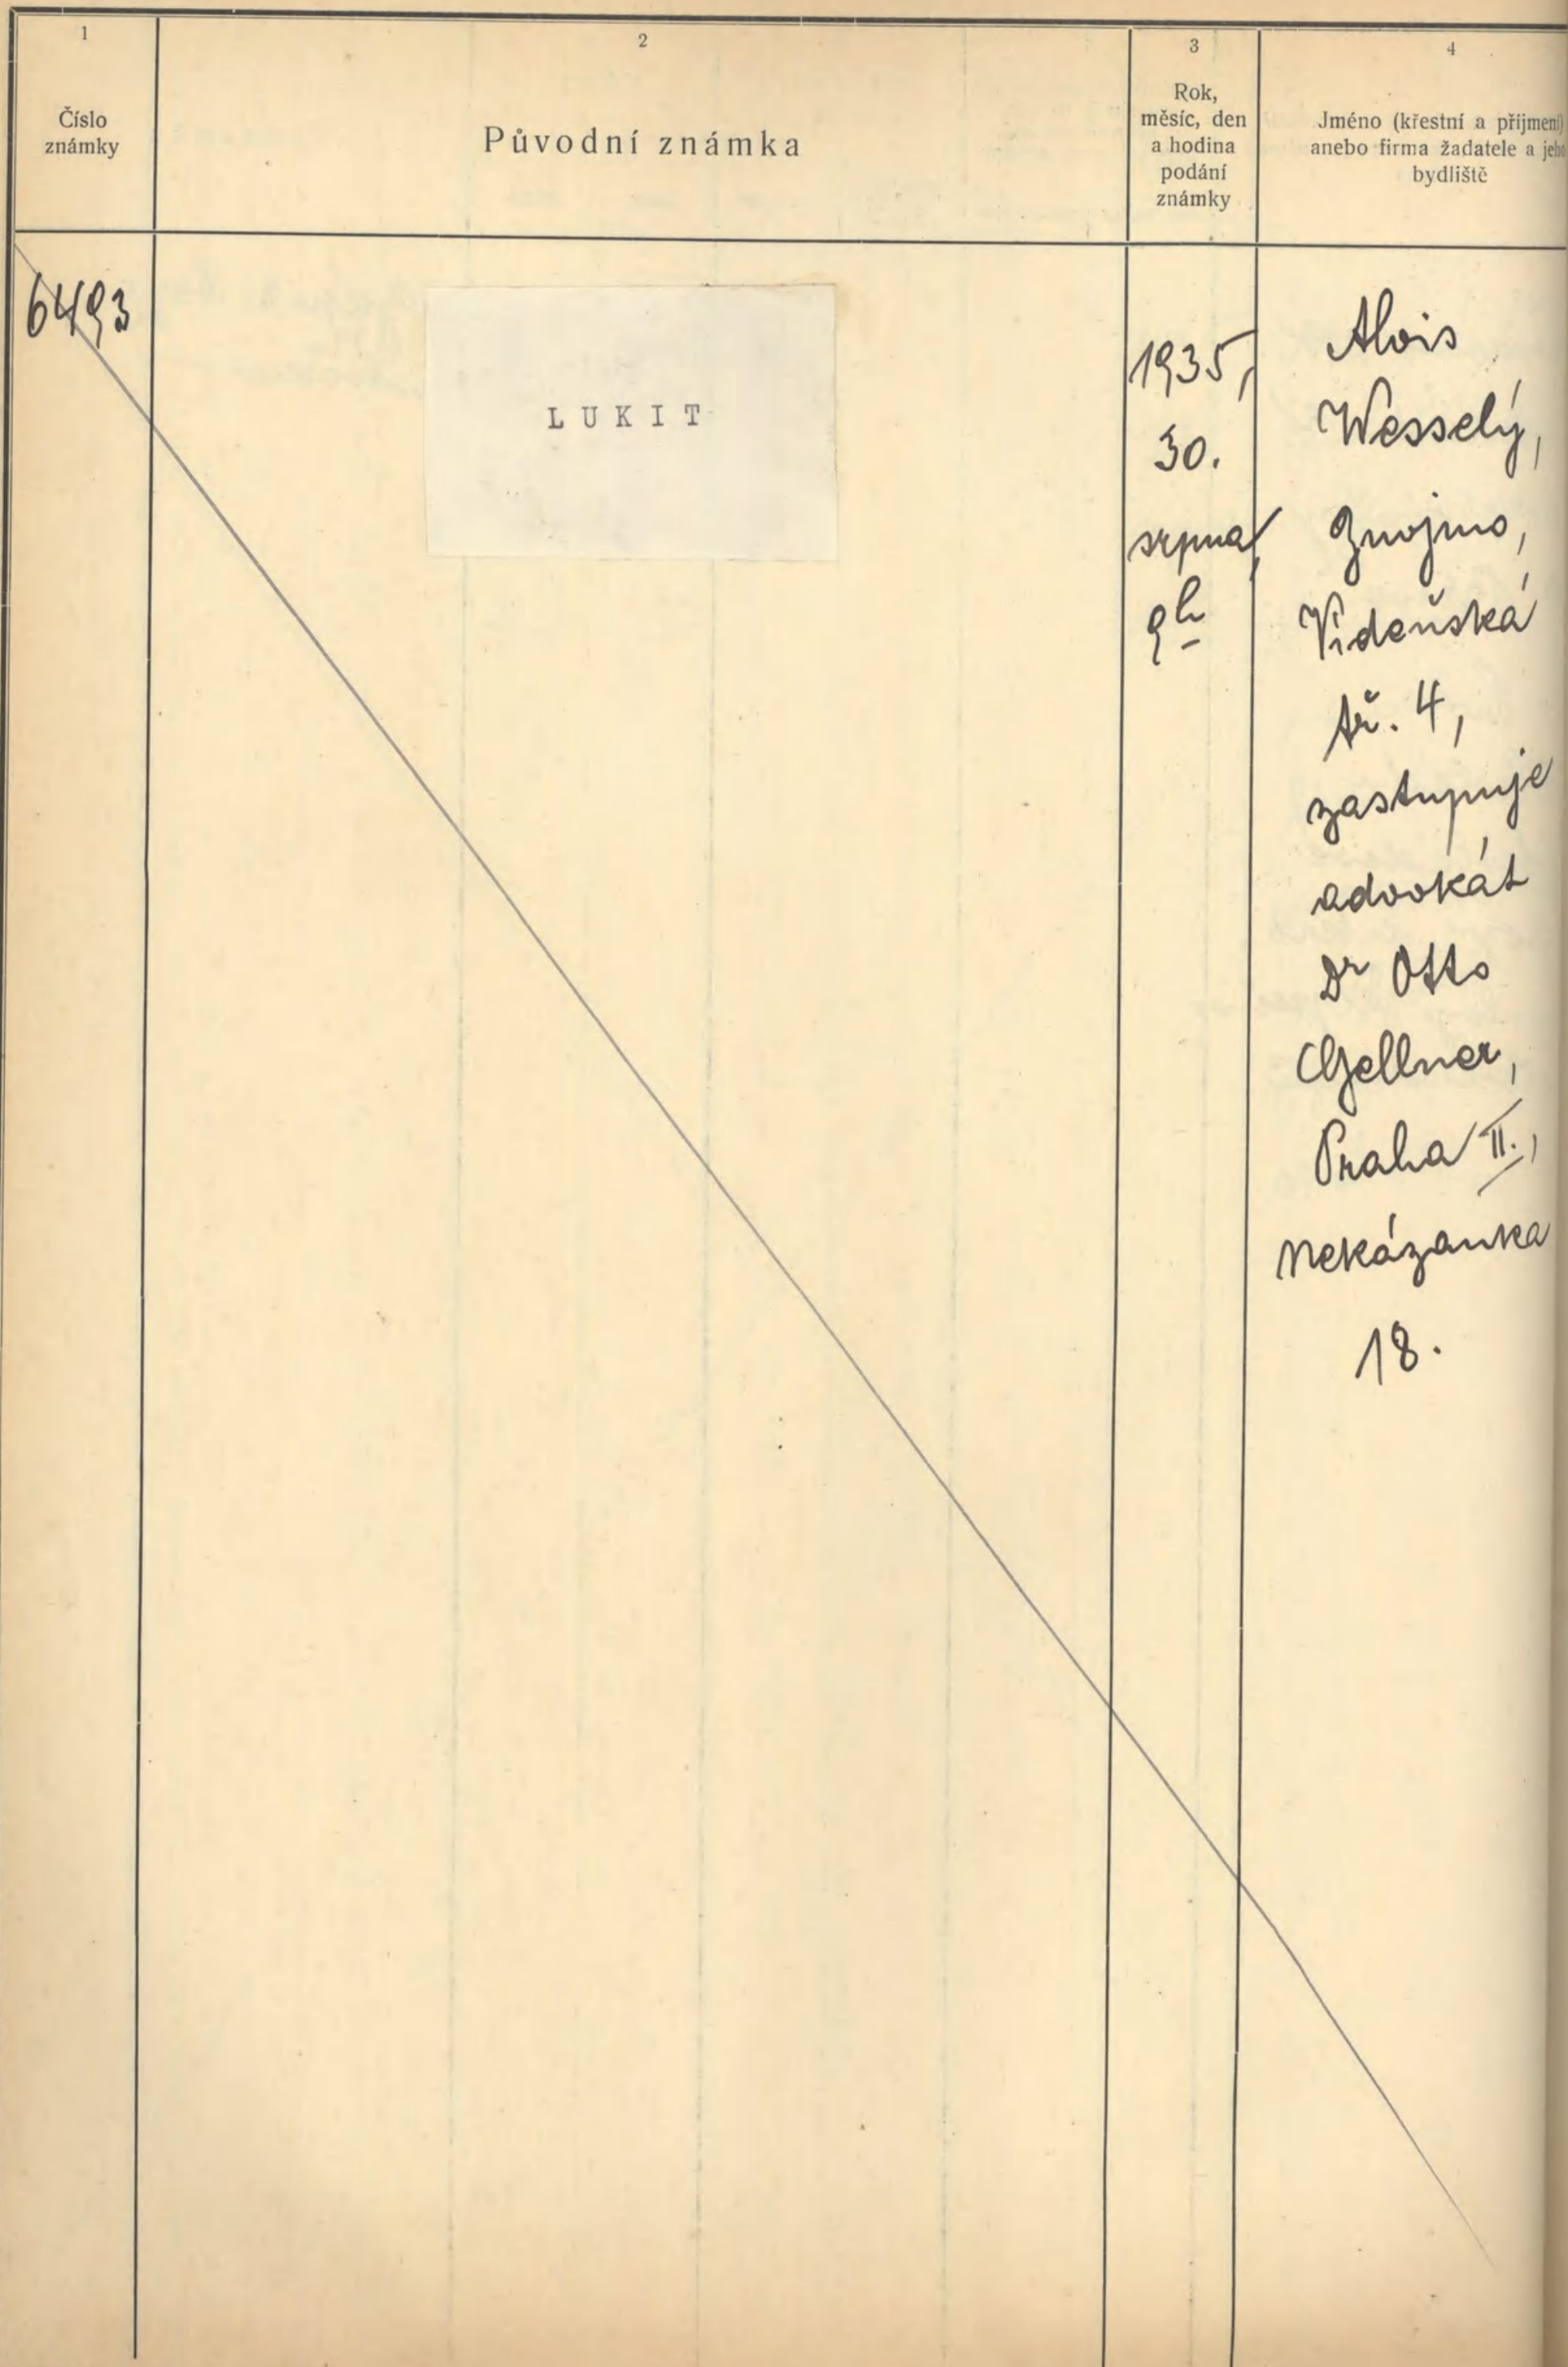 1
Číslo
známky
2
Původní známka
3
Rok,
měsíc, den
a hodina
podání
známky
4
Jméno (křestní a příjmení)
anebo firma žadatele a jeho
bydliště
6493
LUKIT
1935,
30.
srpna,
9h
Alois
Wesselý,
Znojmo,
Vídeňská
tř. 4,
zastupuje
advokát
Dr Otto
Gellner,
Praha II.,
Nekázanka
18.